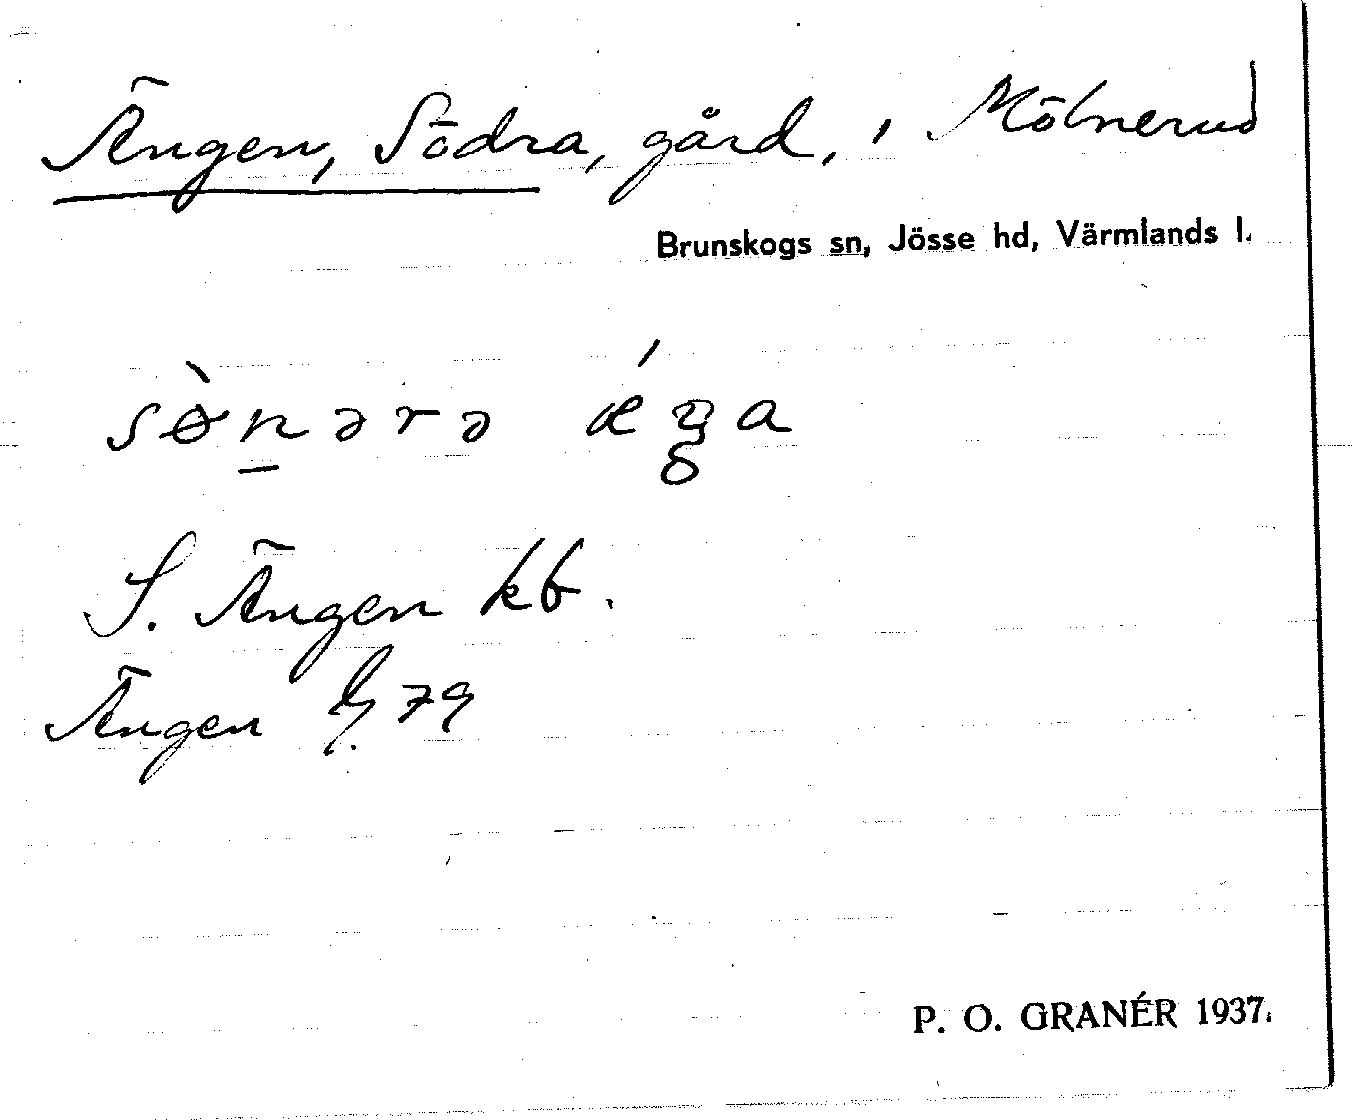 Ängen, Södra, gård, i Mölnerud
Brunskogs sn, Jösse hd, Värmlands l.
sø̀nərə ǽŋa
S. Ängen kb.
Ängen 79
P. O. GRANÉR 1937.